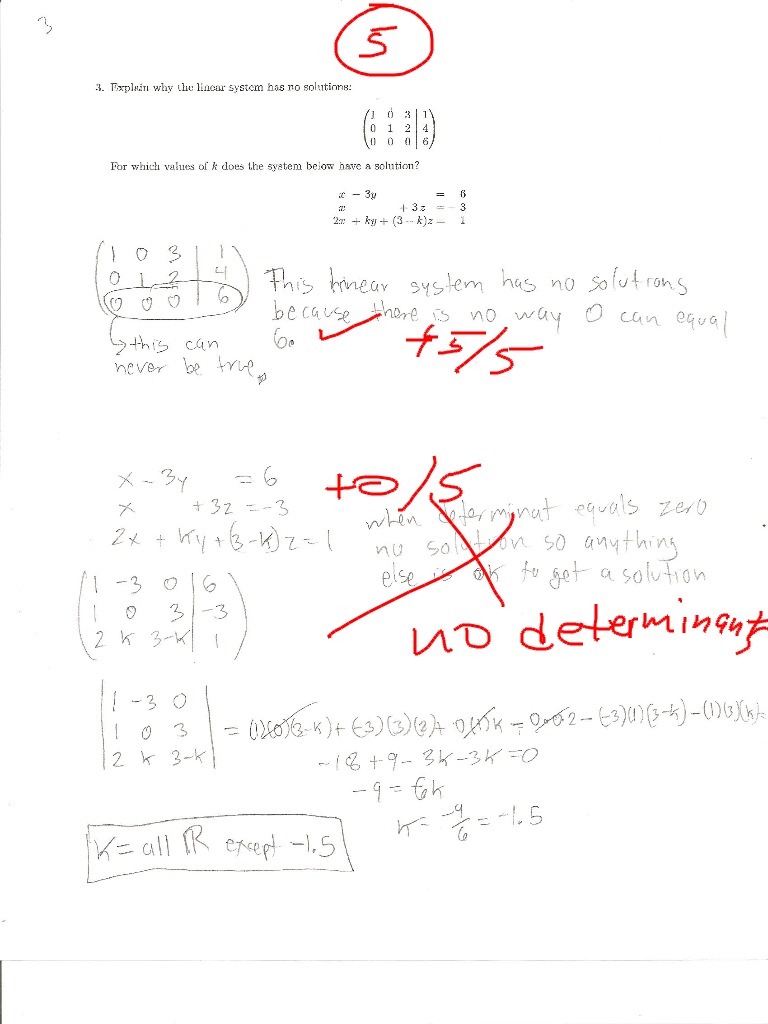 3
5
3. Explain why the linear system has no solutions:
(1 0 3 | 1)
(0 1 2 | 4)
(0 0 0 | 6)
For which values of k does the system below have a solution?
x - 3y = 6
x + 3z = - 3
2x + ky + (3 - k)z = 1
(1 0 3 | 1)
(0 1 2 | 4)
(0 0 0 | 6)
This linear system has no solutions
because there is no way 0 can equal
6.
+5/5
this can
never be true.
x - 3y = 6
x + 3z = -3
2x + ky + (3-k)z = 1
+0/5
when determinat equals zero
no solution so anything
else is ok to get a solution
no determinants
(1 -3 0 | 6)
(1 0 3 | -3)
(2 k 3-k | 1)
|1 -3 0|
|1 0 3|
|2 k 3-k|
= (1)(0)(3-k) + (-3)(3)(2) + 0(1)k - 0·0·2 - (-3)(1)(3-k) - (1)(3)(k) =
-18 + 9 - 3k - 3k = 0
-9 = 6k
k = -9/6 = -1.5
K = all ℝ except -1.5